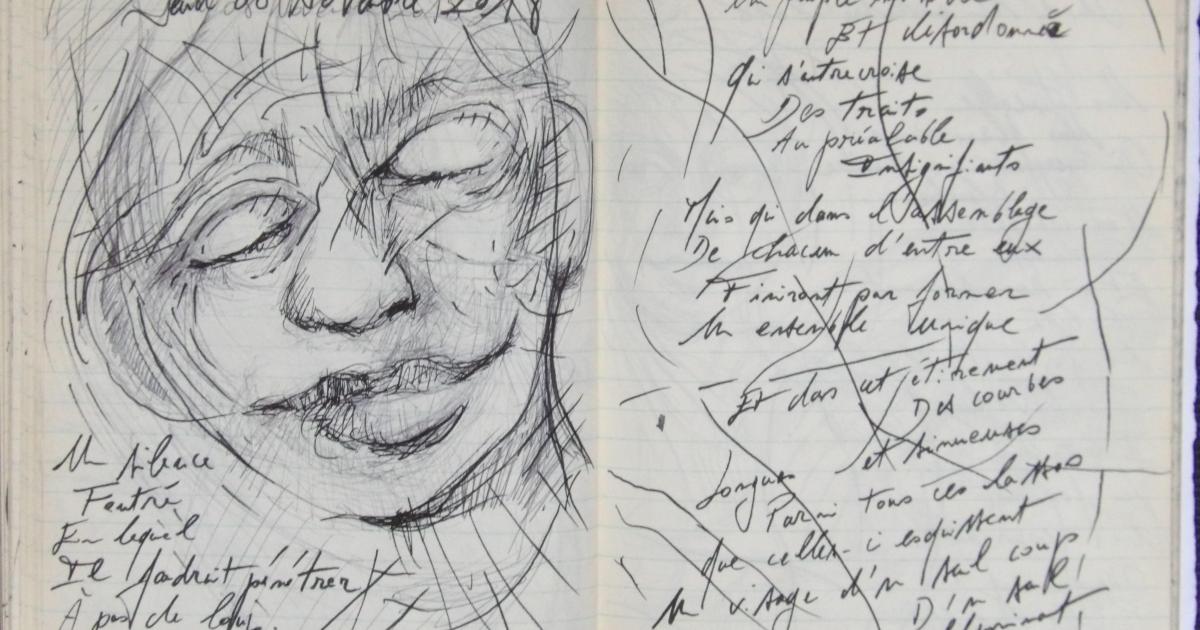 Un silence
Feutré
En lequel
Il faudrait pénétrer
À pas de loup.
Et désordonnée
Qui s'entrecroise
Des traits
Au préalable
Insignifiants
Mais qui dans l'assemblage
De chacun d'entre eux
Finiront par former
Un ensemble unique
Et dans cet étirement
Des courbes
et sinueuses
Longues
Parmi tous ces
Que celles-ci esquissent
Un visage d'un seul coup
D'un seul!